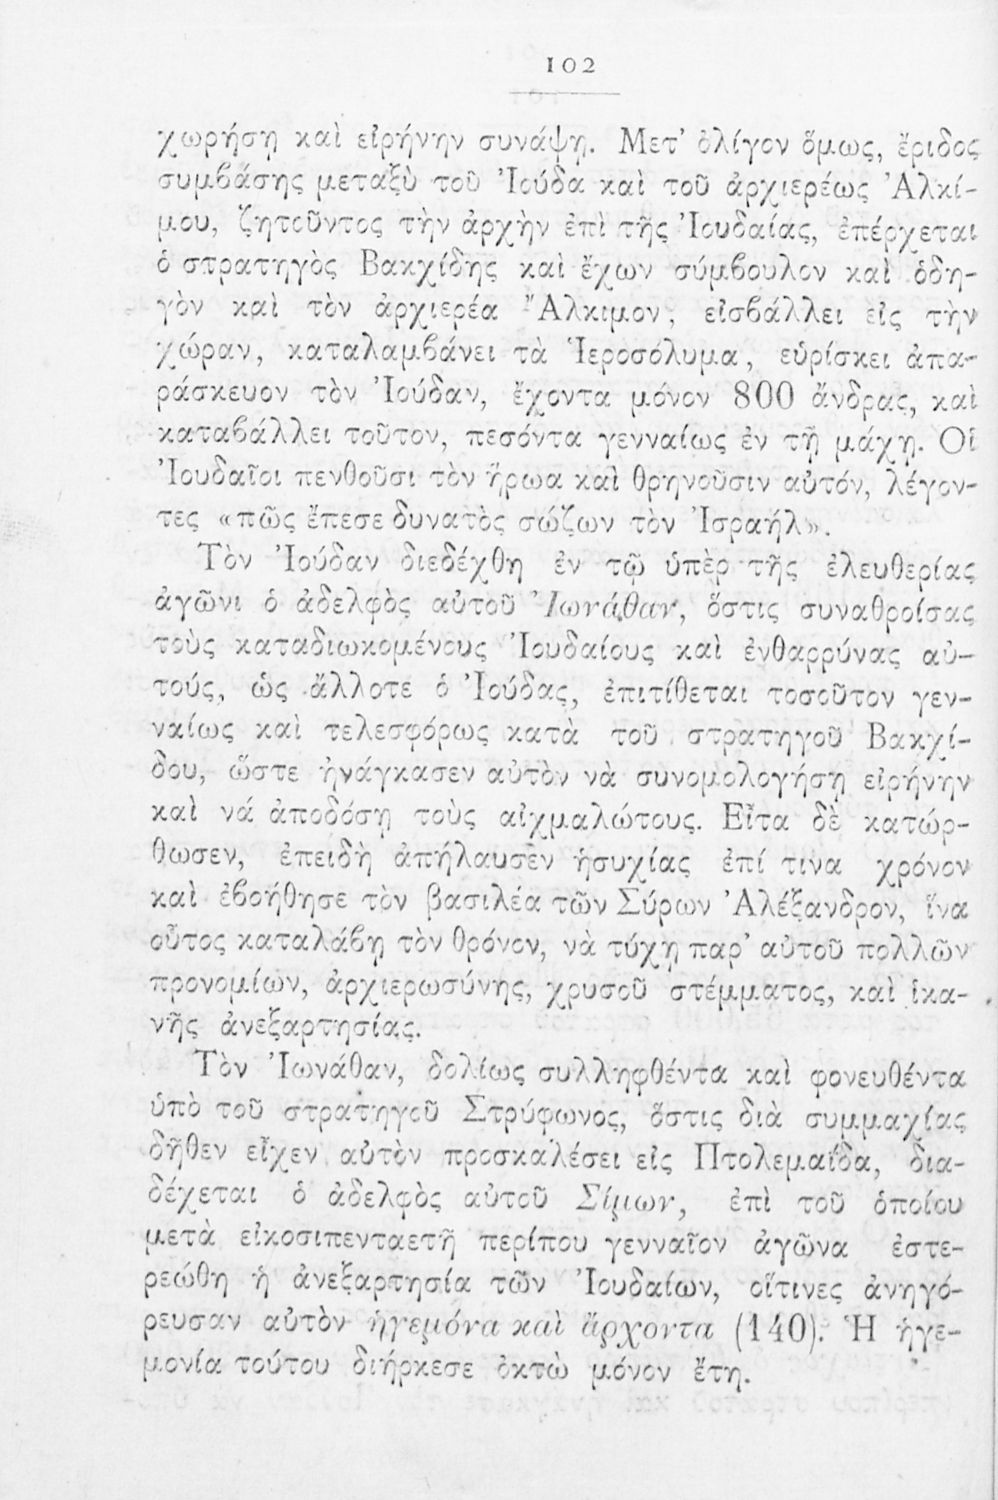 102
χωρήσῃ καὶ εἰρήνην συνάψῃ. Μετ’ ὀλίγον ὅμως, ἔριδος
συμβάσης μεταξὺ τοῦ Ἰούδα καὶ τοῦ ἀρχιερέως Ἀλκί-
μου, ζητοῦντος τὴν ἀρχὴν ἐπὶ τῆς Ἰουδαίας, ἐπέρχεται
ὁ στρατηγὸς Βακχίδης καὶ ἔχων σύμβουλον καὶ ὁδη-
γὸν καὶ τὸν ἀρχιερέα Ἄλκιμον, εἰσβάλλει εἰς τὴν
χώραν, καταλαμβάνει τὰ Ἱεροσόλυμα, εὑρίσκει ἀπα-
ράσκευον τὸν Ἰούδαν, ἔχοντα μόνον 800 ἄνδρας, καὶ
καταβάλλει τοῦτον, πεσόντα γενναίως ἐν τῇ μάχῃ. Οἱ
Ἰουδαῖοι πενθοῦσι τὸν ἥρωα καὶ θρηνοῦσιν αὐτόν, λέγον-
τες «πῶς ἔπεσε δυνατὸς σώζων τὸν Ἰσραήλ».
Τὸν Ἰούδαν διεδέχθη ἐν τῷ ὑπὲρ τῆς ἐλευθερίας
ἀγῶνι ὁ ἀδελφὸς αὐτοῦ Ἰωνάθαν, ὅστις συναθροίσας
τοὺς καταδιωκομένους Ἰουδαίους καὶ ἐνθαρρύνας αὐ-
τούς, ὡς ἄλλοτε ὁ Ἰούδας, ἐπιτίθεται τοσοῦτον γεν-
ναίως καὶ τελεσφόρως κατὰ τοῦ στρατηγοῦ Βακχί-
δου, ὥστε ἠνάγκασεν αὐτὸν νὰ συνομολογήσῃ εἰρήνην
καὶ νά ἀποδόσῃ τοὺς αἰχμαλώτους. Εἶτα δὲ κατώρ-
θωσεν, ἐπειδὴ ἀπήλαυσεν ἡσυχίας ἐπί τινα χρόνον
καὶ ἐβοήθησε τὸν βασιλέα τῶν Σύρων Ἀλέξανδρον, ἵνα
οὗτος καταλάβῃ τὸν θρόνον, νὰ τύχῃ παρ’ αὐτοῦ πολλῶν
προνομίων, ἀρχιερωσύνης, χρυσοῦ στέμματος, καὶ ἱκα-
νῆς ἀνεξαρτησίας.
Τὸν Ἰωνάθαν, δολίως συλληφθέντα καὶ φονευθέντα
ὑπὸ τοῦ στρατηγοῦ Στρύφωνος, ὅστις διὰ συμμαχίας
δῆθεν εἶχεν αὐτὸν προσκαλέσει εἰς Πτολεμαΐδα, δια-
δέχεται ὁ ἀδελφὸς αὐτοῦ Σίμων, ἐπὶ τοῦ ὁποίου
μετὰ εἰκοσιπενταετῆ περίπου γενναῖον ἀγῶνα ἐστε-
ρεώθη ἡ ἀνεξαρτησία τῶν Ἰουδαίων, οἵτινες ἀνηγό-
ρευσαν αὐτὸν ἡγεμόνα καὶ ἄρχοντα (140). Ἡ ἡγε-
μονία τούτου διήρκεσε ὀκτὼ μόνον ἔτη.